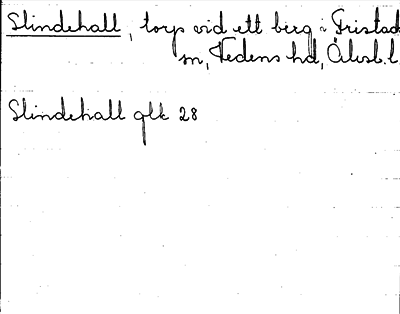 Slindehall, torp vid ett berg i Fristad
sn, Vedens hd, Älvsb. l.
Slindehall glk 28